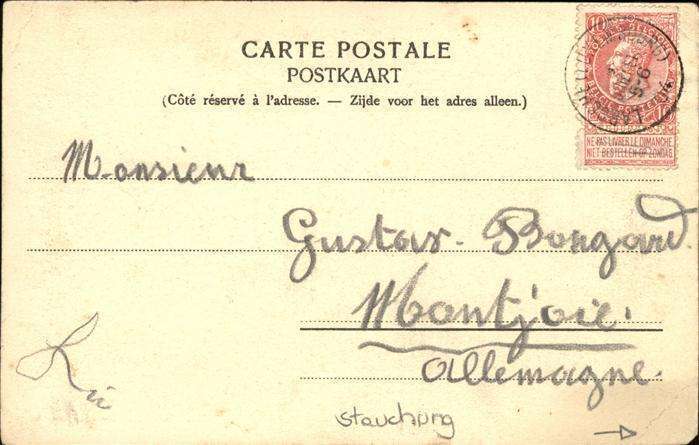 CARTE POSTALE
POSTKAART
(Côté réservé à l'adresse. — Zijde voor het adres alleen.)
10
NE PAS LIVRER LE DIMANCHE
NIET BESTELLEN OP ZONDAG
Monsieur
Gustav. Bongard
Montjoie.
Allemagne.
stauchung